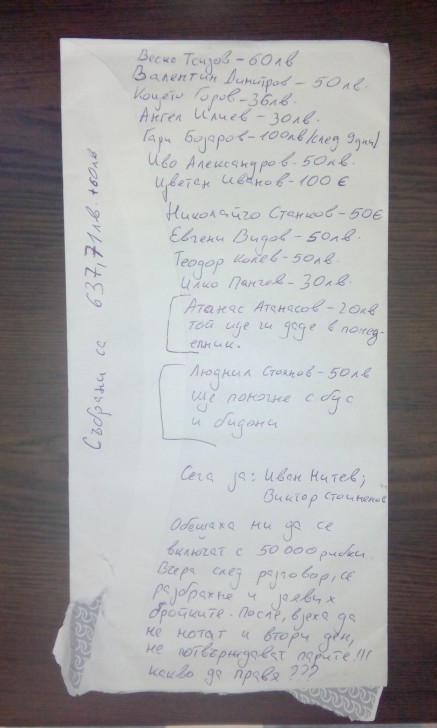 Веско Тсизов - 60лв
Валентин Димитров - 50лв.
Коцето Горов - 36лв.
Ангел Илиев - 30лв.
Гари Бозаров - 100лв/след 9 дни/
Иво Александров - 50лв.
Цветан Иванов - 100 €
Николайчо Станков - 50€
Евгени Видов - 50лв.
Теодор Колев - 50лв.
Илко Панчев - 30лв.
Атанас Атанасов - 20лв
той ще ги даде в понед-
елник.
Людмил Стоянов - 50лв
ще помогне с бус
и бидони
Сега за: Иван Митев;
Виктор Стоименов
Обещаха ни да се
включат с 50 000 рибки.
Вчера след разговор, се
разбрахме и заявих
бройките. После, вчера да
не мотат и втори ден,
не потвърждават парите!!!
какво да правя???
Събрани са 637,71лв. +60лв